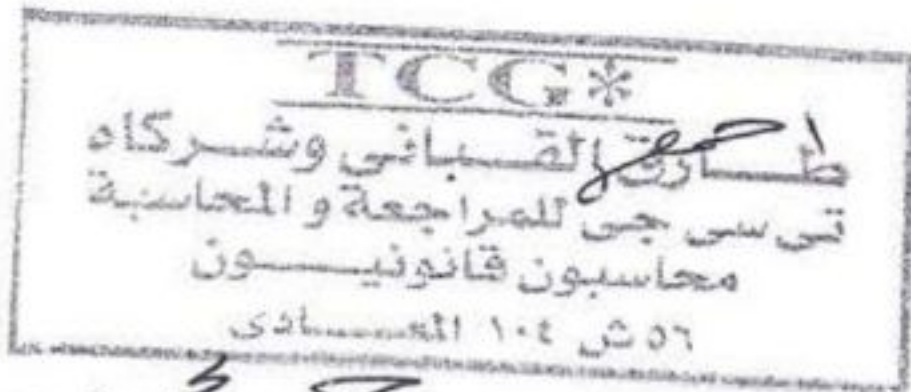 TCG
طارق القباني وشركاه
تى سى جى للمراجعة و المحاسبة
محاسبون قانونيون
٥٦ ش ١٠٤ المعادى